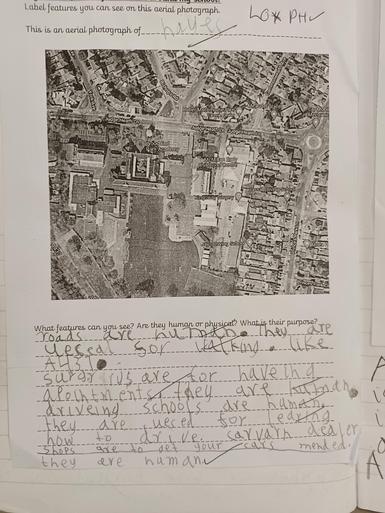 Label features you can see on this aerial photograph.
This is an aerial photograph of
What features can you see? Are they human or physical? What is their purpose?
roads are human. they are
uesed for walking. like
this.
surgerys are for haveing
apointments. they are human.
driveing schools are human.
they are uesed for learing
how to drive. carvarn dealer
shops are to get your cars mended.
they are human